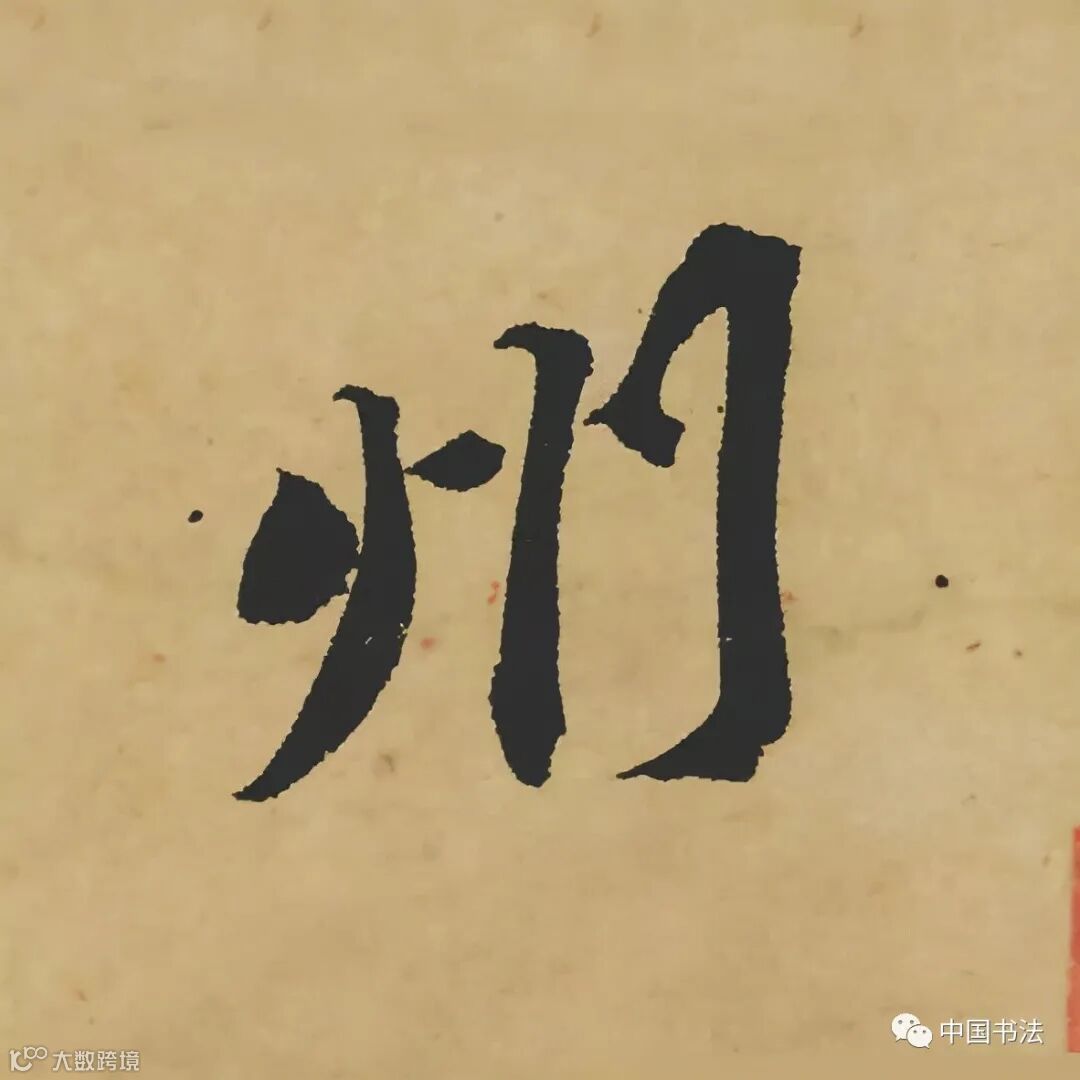 州
中国书法
大数跨境